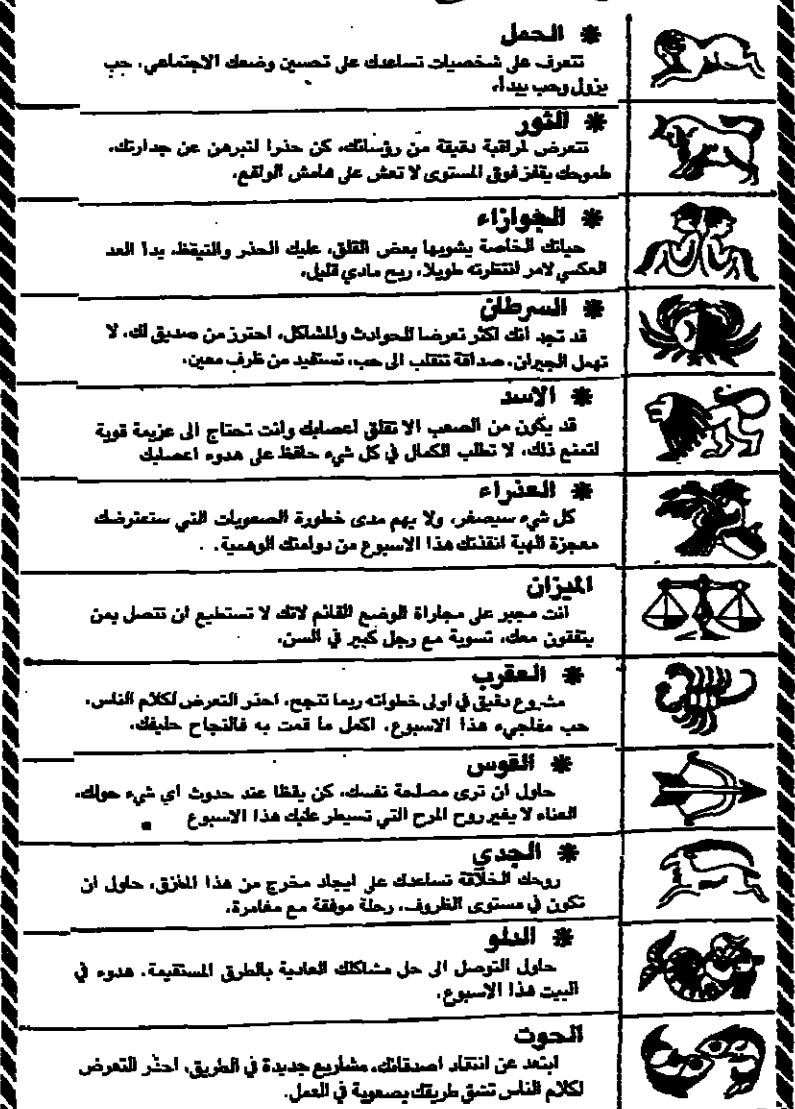 * الحمل
تتعرف على شخصيات تساعدك على تحسين وضعك الاجتماعي، حب
يزول وحب يبدأ.
* الثور
تتعرض لمراقبة دقيقة من رؤسائك، كن حذرا لتبرهن عن جدارتك،
طموحك يقفز فوق المستوى لا تعش على هامش الواقع.
* الجوازاء
حياتك الخاصة يشوبها بعض القلق، عليك الحذر والتيقظ، يبدأ العد
العكسي لامر انتظرته طويلا، ربح مادي قليل.
* السرطان
قد تجد انك اكثر تعرضا للحوادث والمشاكل، احترز من صديق لك، لا
تهمل الجيران، صداقة تنقلب الى حب، تستفيد من ظرف معين.
* الاسد
قد يكون من الصعب الا تقلق اعصابك وانت تحتاج الى عزيمة قوية
لتمنع ذلك، لا تطلب الكمال في كل شيء حافظ على هدوء اعصابك
* العذراء
كل شيء سيصغر، ولا يهم مدى خطورة الصعوبات التي ستعترضك
معجزة الهية انقذتك هذا الاسبوع من دوامتك الوهمية.
الميزان
انت مجبر على مجاراة الوضع القائم لانك لا تستطيع ان تتصل بمن
يتفقون معك، تسوية مع رجل كبير في السن.
* العقرب
مشروع دقيق في اولى خطواته ربما تنجح، احذر التعرض لكلام الناس،
حب مفاجيء هذا الاسبوع، اكمل ما قمت به فالنجاح حليفك.
* القوس
حاول ان ترى مصلحة نفسك، كن يقظا عند حدوث اي شيء حولك،
العناء لا يغير روح المرح التي تسيطر عليك هذا الاسبوع
* الجدي
روحك الخلاقة تساعدك على ايجاد مخرج من هذا المأزق، حاول ان
تكون في مستوى الظروف، رحلة موفقة مع مغامرة.
* الدلو
حاول التوصل الى حل مشاكلك العادية بالطرق المستقيمة، هدوء في
البيت هذا الاسبوع.
الحوت
ابتعد عن انتقاد اصدقائك، مشاريع جديدة في الطريق، احذر التعرض
لكلام الناس تشق طريقك بصعوبة في العمل.